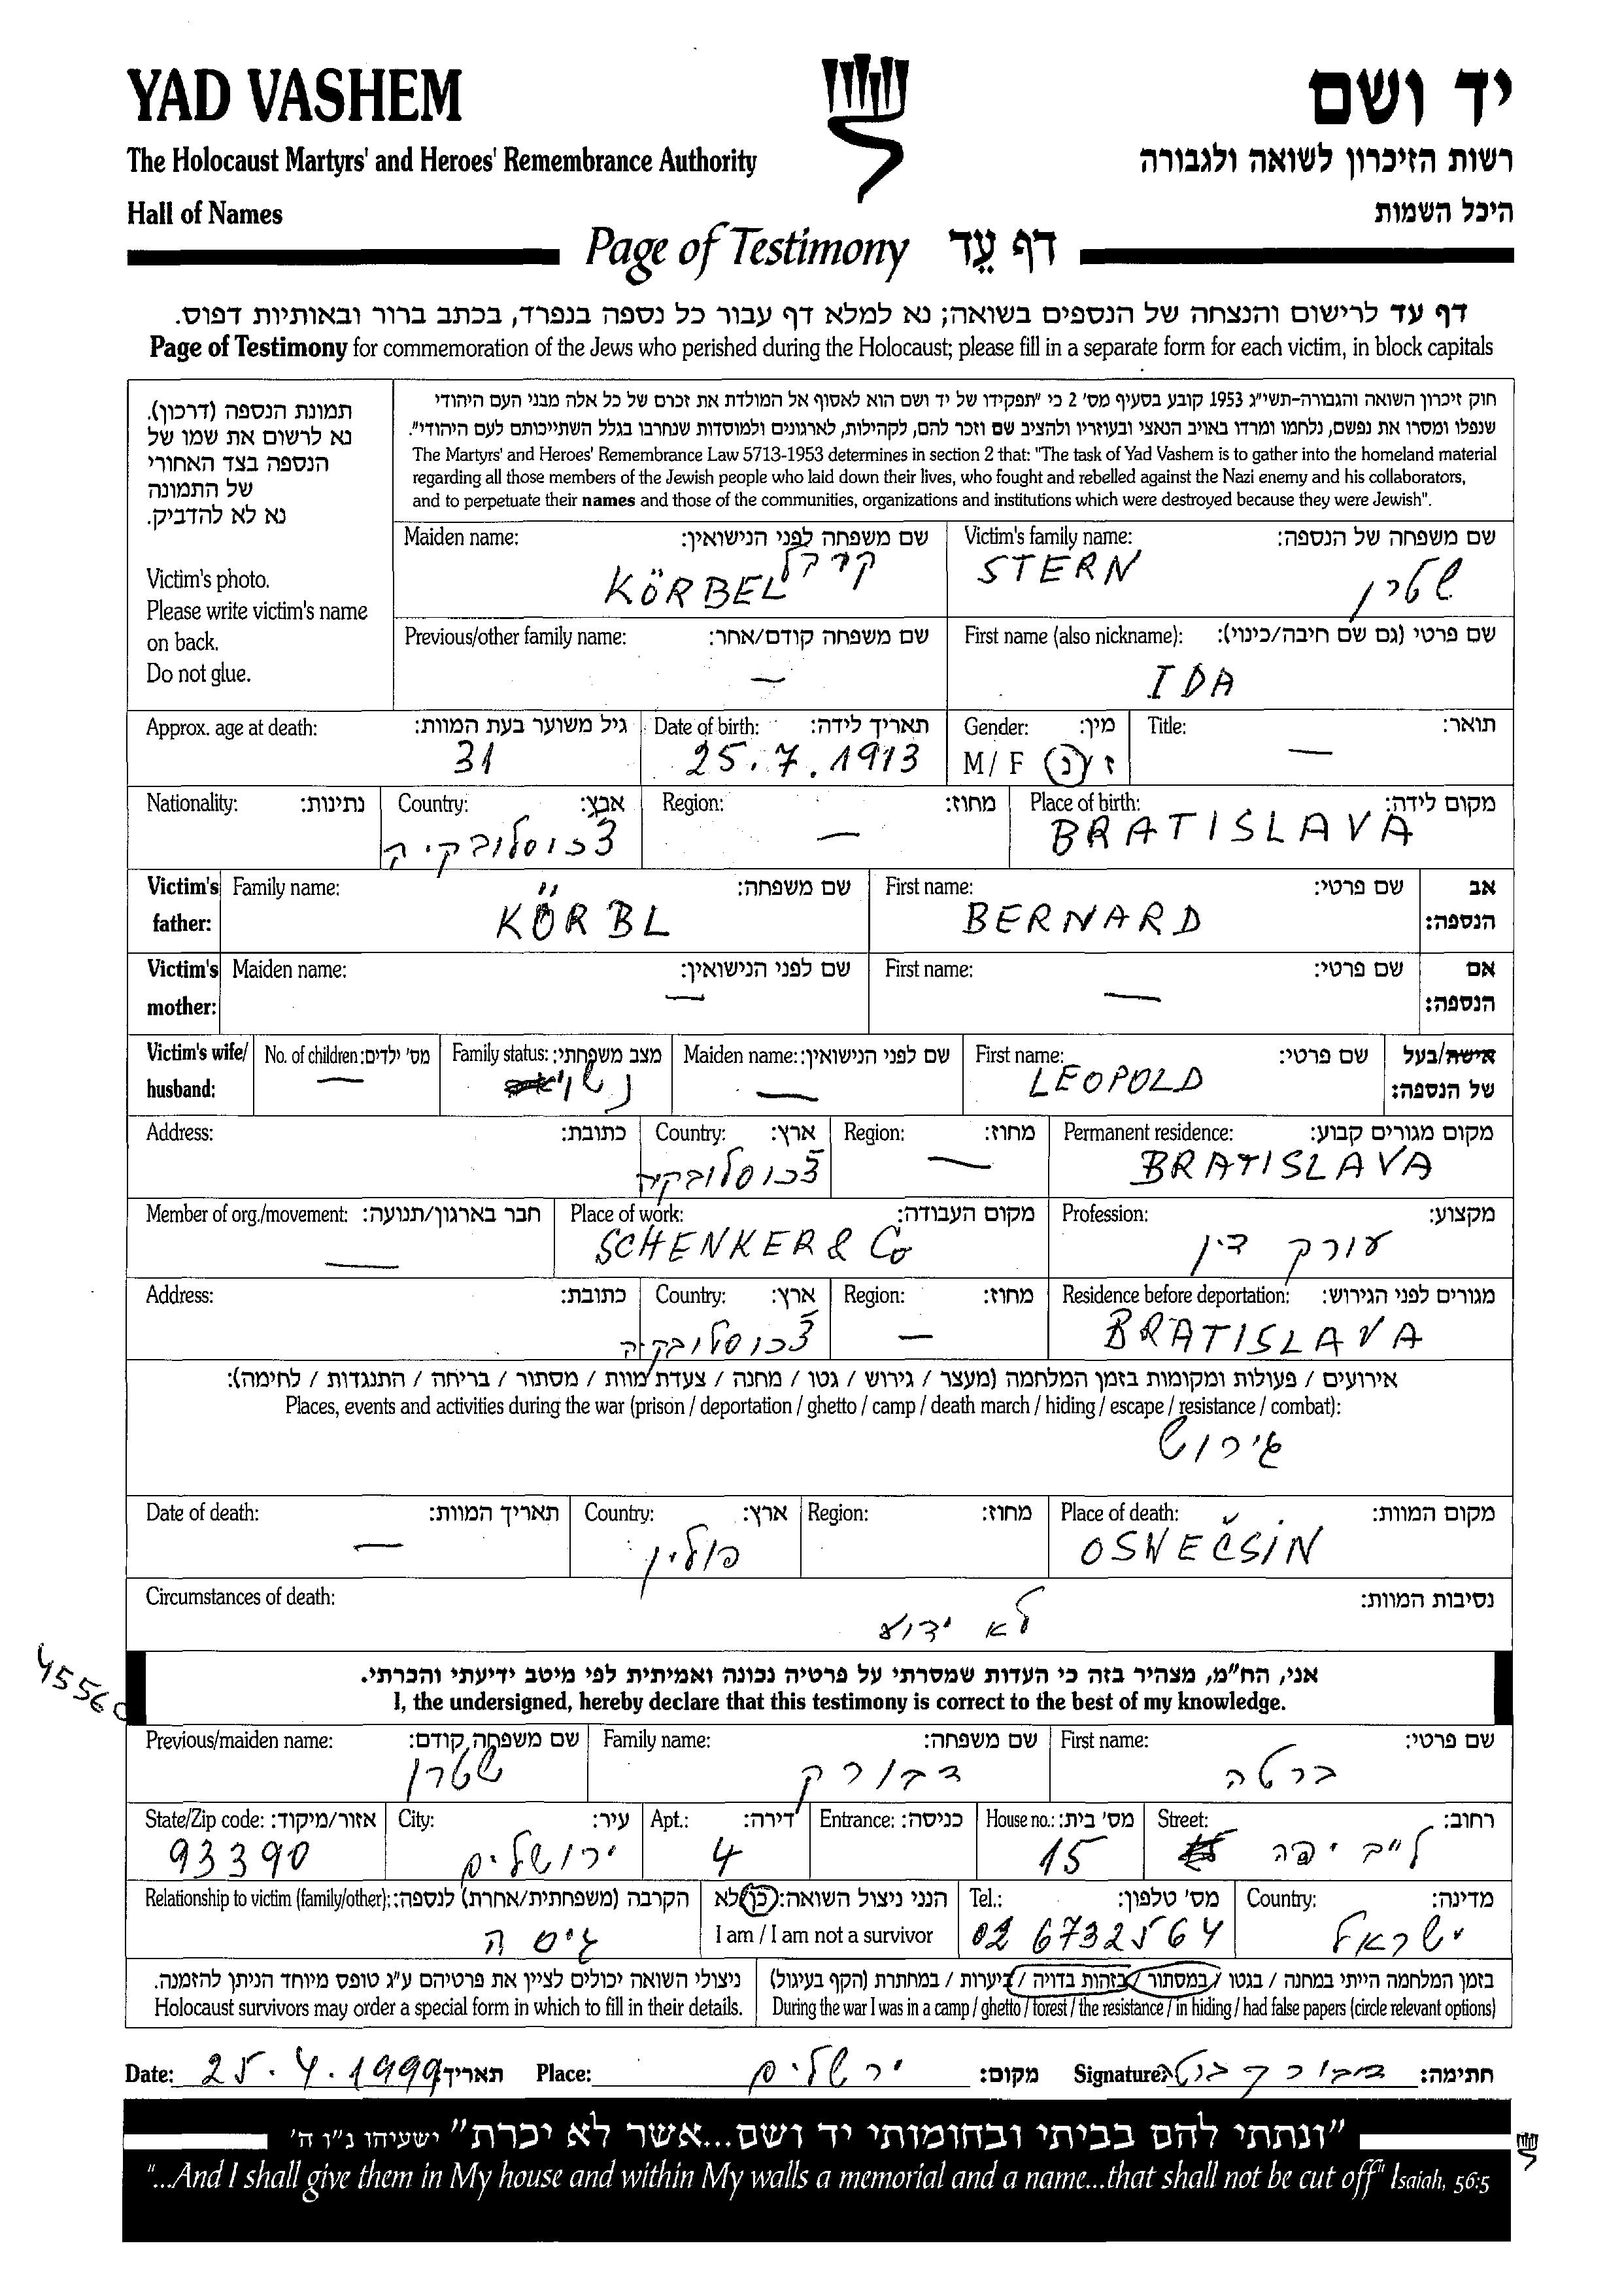 YAD VASHEM
יד ושם
The Holocaust Martyrs' and Heroes' Remembrance Authority
רשות הזיכרון לשואה ולגבורה
Hall of Names
היכל השמות
Page of Testimony דף עֵד
דף עד לרישום והנצחה של הנספים בשואה; נא למלא דף עבור כל נספה בנפרד, בכתב ברור ובאותיות דפוס.
Page of Testimony for commemoration of the Jews who perished during the Holocaust; please fill in a separate form for each victim, in block capitals
תמונת הנספה (דרכון).
נא לרשום את שמו של
הנספה בצד האחורי
של התמונה
נא לא להדביק.
Victim's photo.
Please write victim's name
on back.
Do not glue.
חוק זיכרון השואה והגבורה-תשי"ג 1953 קובע בסעיף מס' 2 כי "תפקידו של יד ושם הוא לאסוף אל המולדת את זכרם של כל אלה מבני העם היהודי
שנפלו ומסרו את נפשם, נלחמו ומרדו באויב הנאצי ובעוזריו ולהציב שם וזכר להם, לקהילות, לארגונים ולמוסדות שנחרבו בגלל השתייכותם לעם היהודי".
The Martyrs' and Heroes' Remembrance Law 5713-1953 determines in section 2 that: "The task of Yad Vashem is to gather into the homeland material
regarding all those members of the Jewish people who laid down their lives, who fought and rebelled against the Nazi enemy and his collaborators,
and to perpetuate their names and those of the communities, organizations and institutions which were destroyed because they were Jewish".
Maiden name: שם משפחה לפני הנישואין: Victim's family name: שם משפחה של הנספה:
KÖRBEL קרבל STERN שטרן
Previous/other family name: שם משפחה קודם/אחר: First name (also nickname): שם פרטי (גם שם חיבה/כינוי):
— IDA
Approx. age at death: גיל משוער בעת המוות: Date of birth: תאריך לידה: Gender: מין: Title: תואר:
31 25.7.1913 M/F ז/נ —
Nationality: נתינות: Country: ארץ: Region: מחוז: Place of birth: מקום לידה:
צ'כוסלובקיה — BRATISLAVA
Victim's father: Family name: שם משפחה: First name: שם פרטי: אב הנספה:
KÖRBL BERNARD
Victim's mother: Maiden name: שם לפני הנישואין: First name: שם פרטי: אם הנספה:
— —
Victim's wife/ husband: No. of children: מס' ילדים: Family status: מצב משפחתי: Maiden name: שם לפני הנישואין: First name: שם פרטי: אישה/בעל של הנספה:
— — LEOPOLD
Address: כתובת: Country: ארץ: Region: מחוז: Permanent residence: מקום מגורים קבוע:
צ'כוסלובקיה — BRATISLAVA
Member of org./movement: חבר בארגון/תנועה: Place of work: מקום העבודה: Profession: מקצוע:
— SCHENKER & Co עורק דין
Address: כתובת: Country: ארץ: Region: מחוז: Residence before deportation: מגורים לפני הגירוש:
צ'כוסלובקיה — BRATISLAVA
אירועים / פעולות ומקומות בזמן המלחמה (מעצר / גירוש / גטו / מחנה / צעדת מוות / מסתור / בריחה / התנגדות / לחימה):
Places, events and activities during the war (prison / deportation / ghetto / camp / death march / hiding / escape / resistance / combat):
גירוש
Date of death: תאריך המוות: Country: ארץ: Region: מחוז: Place of death: מקום המוות:
— פולין OSWEČSIN
Circumstances of death: נסיבות המוות:
לא ידוע
45560
אני, הח"מ, מצהיר בזה כי העדות שמסרתי על פרטיה נכונה ואמיתית לפי מיטב ידיעתי והכרתי.
I, the undersigned, hereby declare that this testimony is correct to the best of my knowledge.
Previous/maiden name: שם משפחה קודם: Family name: שם משפחה: First name: שם פרטי:
שטרן דבורק ברטה
State/Zip code: אזור/מיקוד: City: עיר: Apt.: דירה: Entrance: כניסה: House no.: מס' בית: Street: רחוב:
93390 ירושלים 4 15 לייב יפה
Relationship to victim (family/other): הקרבה (משפחתית/אחרת) לנספה: הנני ניצול השואה: כן/לא Tel.: מס' טלפון: Country: מדינה:
גיסה I am / I am not a survivor 02 6732564 ישראל
ניצולי השואה יכולים לציין את פרטיהם ע"ג טופס מיוחד הניתן להזמנה. בזמן המלחמה הייתי במחנה / בגטו / במסתור / בזהות בדויה / ביערות / במחתרת (הקף בעיגול)
Holocaust survivors may order a special form in which to fill in their details. During the war I was in a camp / ghetto / forest / the resistance / in hiding / had false papers (circle relevant options)
Date: 25.4.1999 תאריך Place: ירושלים מקום: Signature: דבורק ברטה חתימה:
"ונתתי להם בביתי ובחומותי יד ושם...אשר לא יכרת" ישעיהו נ"ו ה'
"...And I shall give them in My house and within My walls a memorial and a name...that shall not be cut off" Isaiah, 56:5